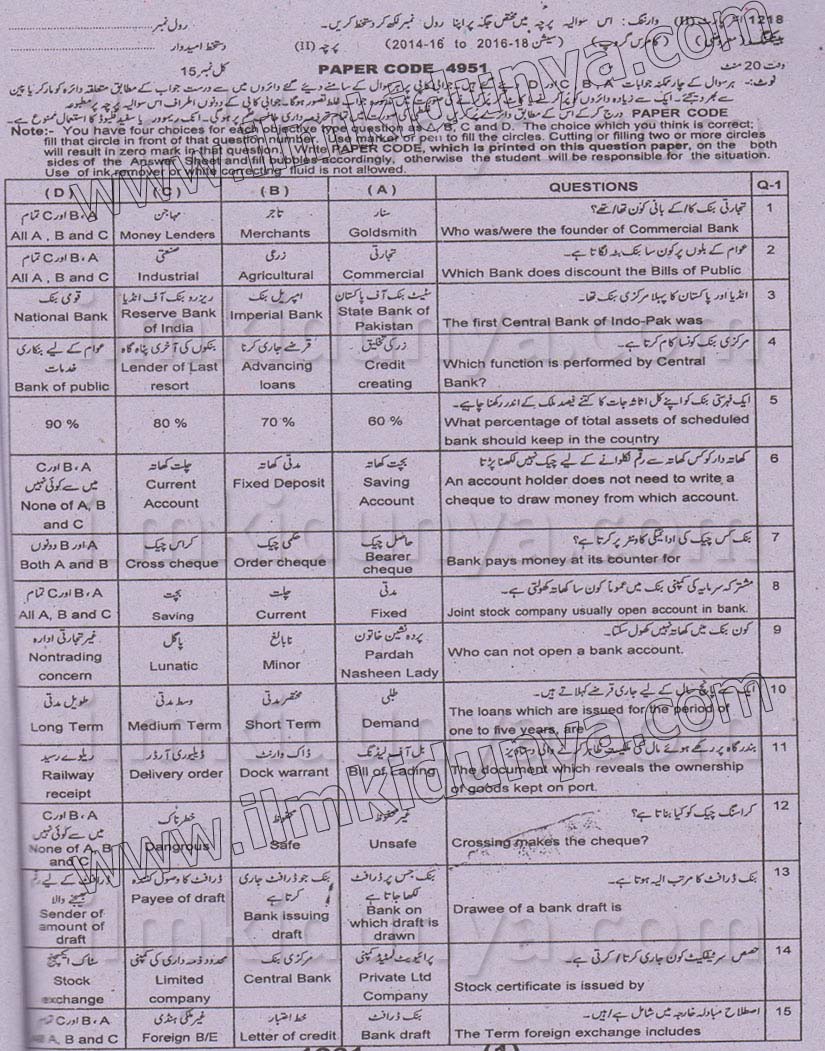 1218 وارننگ:۔ اس سوالیہ پرچہ میں مختص جگہ پر اپنا رول نمبر لکھ کر دستخط کریں۔ رول نمبر
(کامرس گروپ) (سیشن 2014-16 to 2016-18) پرچہ (II) دستخط امیدوار
وقت 20 منٹ PAPER CODE 4951 کل نمبر 15
PAPER CODE
Note:- You have four choices for each objective type question as A, B, C and D. The choice which you think is correct;
fill that circle in front of that question number. Use marker or pen to fill the circles. Cutting or filling two or more circles
will result in zero mark in that question. Write PAPER CODE, which is printed on this question paper, on the both
sides of the Answer Sheet and fill bubbles accordingly, otherwise the student will be responsible for the situation.
Use of ink remover or white correcting fluid is not allowed.
(D) (C) (B) (A) QUESTIONS Q-1
تجارتی بنک کا/کے بانی کون تھا/تھے؟ 1
سنار تاجر مہاجن A، B اور C تمام
All A , B and C Money Lenders Merchants Goldsmith Who was/were the founder of Commercial Bank
عوام کے بلوں پر کون سا بنک بٹہ لگاتا ہے۔ 2
تجارتی زرعی صنعتی A، B اور C تمام
All A, B and C Industrial Agricultural Commercial Which Bank does discount the Bills of Public
انڈیا اور پاکستان کا پہلا مرکزی بنک تھا۔ 3
سٹیٹ بنک آف پاکستان امپیریل بنک ریزرو بنک آف انڈیا قومی بنک
National Bank Reserve Bank of India Imperial Bank State Bank of Pakistan The first Central Bank of Indo-Pak was
مرکزی بنک کونسا کام کرتا ہے۔ 4
زر کی تخلیق قرضے جاری کرنا بنکوں کی آخری پناہ گاہ عوام کے لیے بنکاری خدمات
Bank of public Lender of Last resort Advancing loans Credit creating Which function is performed by Central Bank?
ایک فہرستی بنک کو اپنے کل اثاثہ جات کا کتنے فیصد ملک کے اندر رکھنا چاہیے۔ 5
90 % 80 % 70 % 60 % What percentage of total assets of scheduled
bank should keep in the country
کھاتہ دار کو کس کھاتہ سے رقم نکلوانے کے لیے چیک نہیں لکھنا پڑتا 6
بچت کھاتہ مدتی کھاتہ چلت کھاتہ A، B اور C میں سے کوئی نہیں
None of A, B and C Current Account Fixed Deposit Saving Account An account holder does not need to write a
cheque to draw money from which account.
بنک کس چیک کی ادائیگی کاونٹر پر کرتا ہے؟ 7
حاصل چیک حکمی چیک کراس چیک A اور B دونوں
Both A and B Cross cheque Order cheque Bearer cheque Bank pays money at its counter for
مشترکہ سرمایہ کی کمپنی بنک میں عموماً کون سا کھاتہ کھولتی ہے۔ 8
مدتی چلت بچت A، B اور C تمام
All A, B and C Saving Current Fixed Joint stock company usually open account in bank.
کون بنک میں کھاتہ نہیں کھول سکتا۔ 9
پردہ نشین خاتون نابالغ پاگل غیر تجارتی ادارہ
Nontrading concern Lunatic Minor Pardah Nasheen Lady Who can not open a bank account.
ایک سے پانچ سال کے لیے جاری قرضے کہلاتے ہیں۔ 10
طلبی مختصر مدتی وسط مدتی طویل مدتی
Long Term Medium Term Short Term Demand The loans which are issued for the period of
one to five years, are
بندرگاہ پر رکھے ہوئے مال کی ملکیت ظاہر کرنے والی دستاویز 11
بل آف لیڈنگ ڈاک وارنٹ ڈیلیوری آرڈر ریلوے رسید
Railway receipt Delivery order Dock warrant Bill of Lading The document which reveals the ownership
of goods kept on port.
کراسنگ چیک کو کیا بناتا ہے؟ 12
غیر محفوظ محفوظ خطرناک A، B اور C میں سے کوئی نہیں
None of A, B and C Dangrous Safe Unsafe Crossing makes the cheque?
بنک ڈرافٹ کا مرتب الیہ ہوتا ہے۔ 13
بنک جس پر ڈرافٹ لکھا جاتا ہے بنک جو ڈرافٹ جاری کرتا ہے ڈرافٹ کا وصول کنندہ ڈرافٹ کے لیے رقم بھیجنے والا
Sender of amount of draft Payee of draft Bank issuing draft Bank on which draft is drawn Drawee of a bank draft is
حصص سرٹیفکیٹ کون جاری کرتا/کرتی ہے۔ 14
پرائیویٹ لمیٹڈ کمپنی مرکزی بنک محدود ذمہ داری کی کمپنی سٹاک ایکسچینج
Stock exchange Limited company Central Bank Private Ltd Company Stock certificate is issued by
اصطلاح مبادلہ خارجہ میں شامل ہے/ہیں۔ 15
بنک ڈرافٹ خط اعتبار غیر ملکی ہنڈی A، B اور C تمام
All A, B and C Foreign B/E Letter of credit Bank draft The Term foreign exchange includes
(1)
www.ilmkidunya.com
www.ilmkidunya.com
ilmkidunya.com